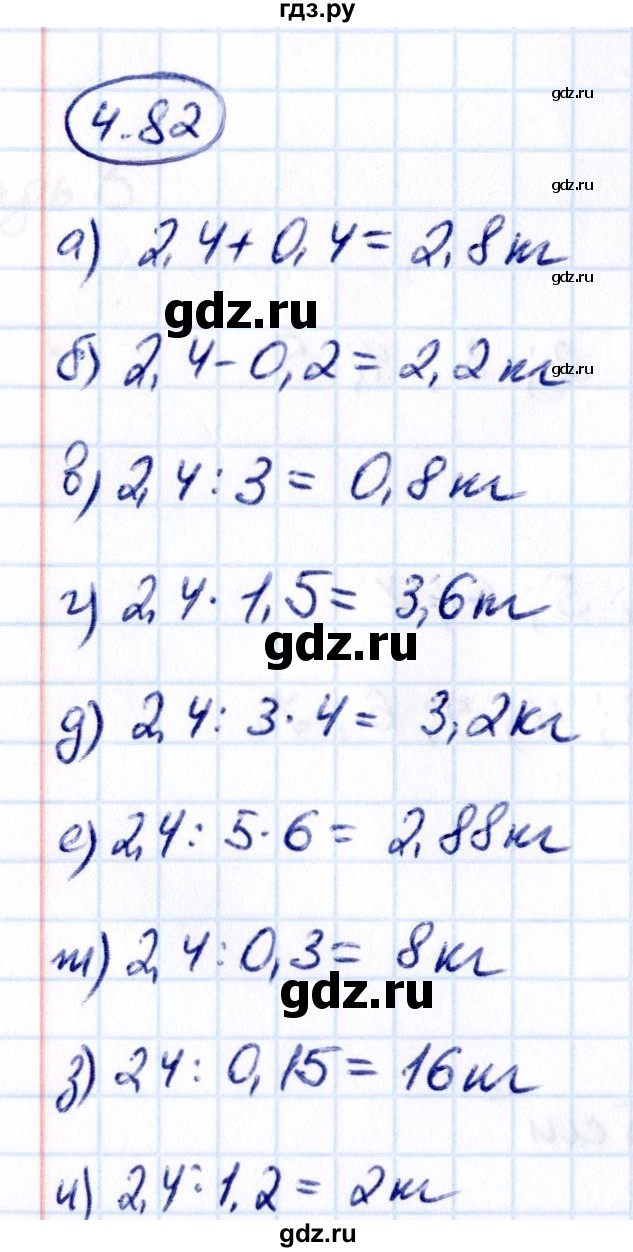 гдз.ру
4.82
gdz.ru
gdz.ru
а) 2,4+0,4=2,8кг
gdz.ru
gdz.ru
б) 2,4-0,2=2,2кг
gdz.ru
в) 2,4:3= 0,8кг
г) 2,4·1,5= 3,6кг
gdz.ru
д) 2,4:3·4= 3,2кг
е) 2,4:5·6= 2,88кг
ж) 2,4:0,3= 8кг
gdz.ru
з) 2,4:0,15=16кг
и) 2,4:1,2= 2кг
gdz.ru